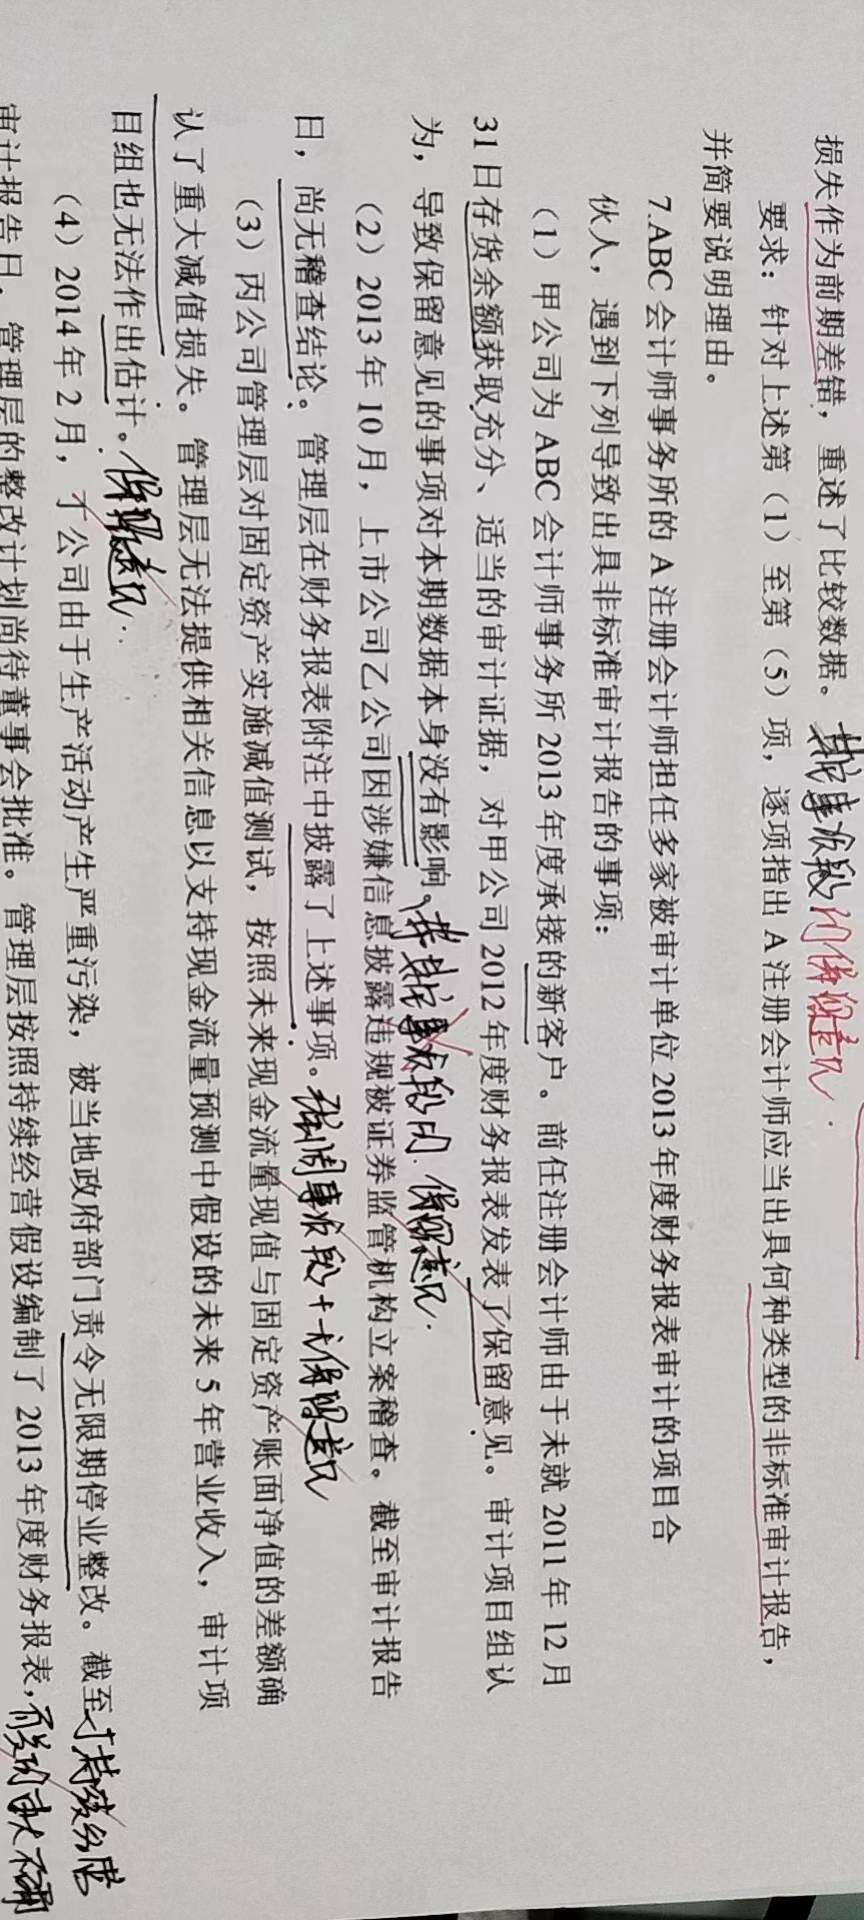 损失作为前期差错，重述了比较数据。其他事项段 保留意见.
要求：针对上述第（1）至第（5）项，逐项指出 A 注册会计师应当出具何种类型的非标准审计报告，
并简要说明理由。
7.ABC 会计师事务所的 A 注册会计师担任多家被审计单位 2013 年度财务报表审计的项目合
伙人，遇到下列导致出具非标准审计报告的事项：
（1）甲公司为 ABC 会计师事务所 2013 年度承接的新客户。前任注册会计师由于未就 2011 年 12 月
31 日存货余额获取充分、适当的审计证据，对甲公司 2012 年度财务报表发表了保留意见。审计项目组认
为，导致保留意见的事项对本期数据本身没有影响。 保留意见.
（2）2013 年 10 月，上市公司乙公司因涉嫌信息披露违规被证券监管机构立案稽查。截至审计报告
日，尚无稽查结论。管理层在财务报表附注中披露了上述事项。强调事项段+无保留意见
（3）丙公司管理层对固定资产实施减值测试，按照未来现金流量现值与固定资产账面净值的差额确
认了重大减值损失。管理层无法提供相关信息以支持现金流量预测中假设的未来 5 年营业收入，审计项
目组也无法作出估计。保留意见.
（4）2014 年 2 月，丁公司由于生产活动产生严重污染，被当地政府部门责令无限期停业整改。截至
审计报告日，管理层的整改计划尚待董事会批准。管理层按照持续经营假设编制了 2013 年度财务报表，